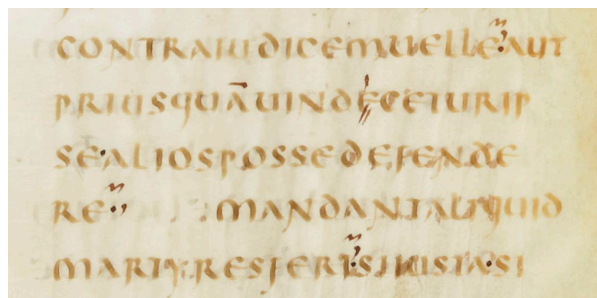 CONTRAIUDICEMUELLEAUT
PRIUSQUĀUINDECETURIP
SEALIOSPOSSEDEFENDE
RE MANDANTALIQUID
MARTYRESFERISIIUSTASI